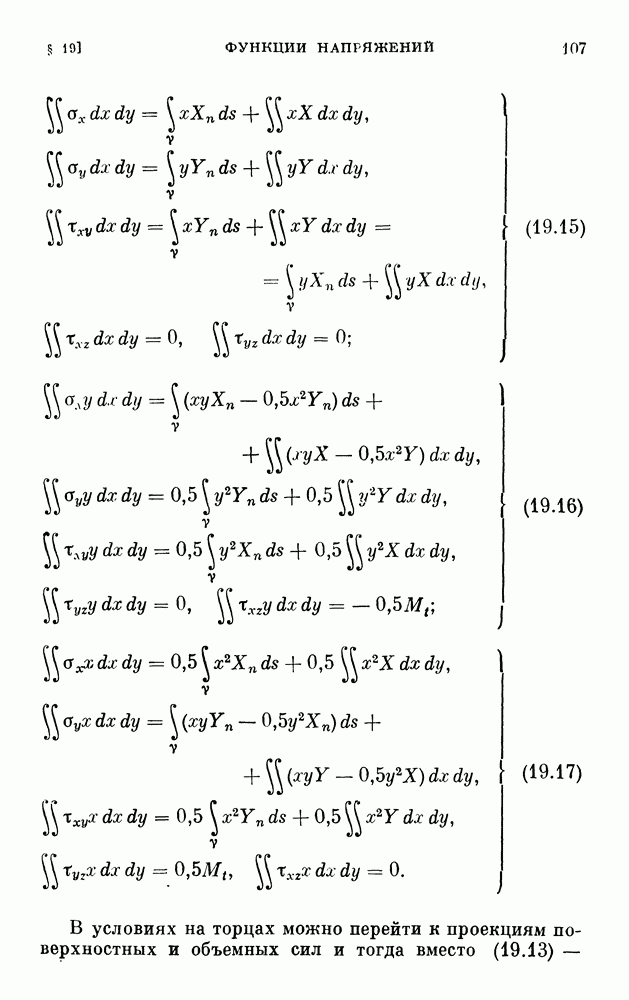 § 19] ФУНКЦИИ НАПРЯЖЕНИЙ 107
∬ σₓ dx dy = ∫_γ xXₙ ds + ∬ xX dx dy,
∬ σ_y dx dy = ∫_γ yYₙ ds + ∬ yY dx dy,
∬ τ_xy dx dy = ∫_γ xYₙ ds + ∬ xY dx dy = (19.15)
= ∫_γ yXₙ ds + ∬ yX dx dy,
∬ τ_xz dx dy = 0, ∬ τ_yz dx dy = 0;
∬ σₓy dx dy = ∫_γ (xyXₙ — 0,5x²Yₙ) ds +
+ ∬ (xyX — 0,5x²Y) dx dy,
∬ σ_y y dx dy = 0,5 ∫_γ y²Yₙ ds + 0,5 ∬ y²Y dx dy, (19.16)
∬ τ_xy y dx dy = 0,5 ∫_γ y²Xₙ ds + 0,5 ∬ y²X dx dy,
∬ τ_yz y dx dy = 0, ∬ τ_xz y dx dy = — 0,5M_t;
∬ σₓx dx dy = 0,5 ∫_γ x²Xₙ ds + 0,5 ∬ x²X dx dy,
∬ σ_y x dx dy = ∫_γ (xyYₙ — 0,5y²Xₙ) ds +
+ ∬ (xyY — 0,5y²X) dx dy, (19.17)
∬ τ_xy x dx dy = 0,5 ∫_γ x²Yₙ ds + 0,5 ∬ x²Y dx dy,
∬ τ_yz x dx dy = 0,5M_t, ∬ τ_xz x dx dy = 0.
В условиях на торцах можно перейти к проекциям по-
верхностных и объемных сил и тогда вместо (19.13) —